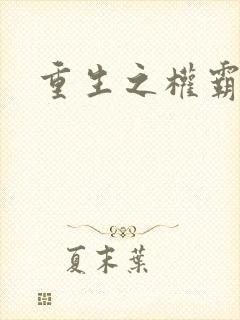 重生之權霸
夏末葉